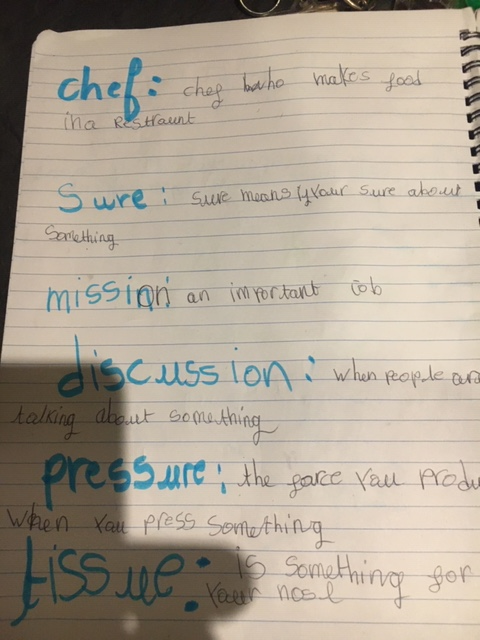 chef: chef who makes food
in a Restraunt
Sure: sure means if your sure about
something
mission: an important job
discussion: when people are
talking about something
pressure: the force you produ
when you press something
tissue: is something for
your nose